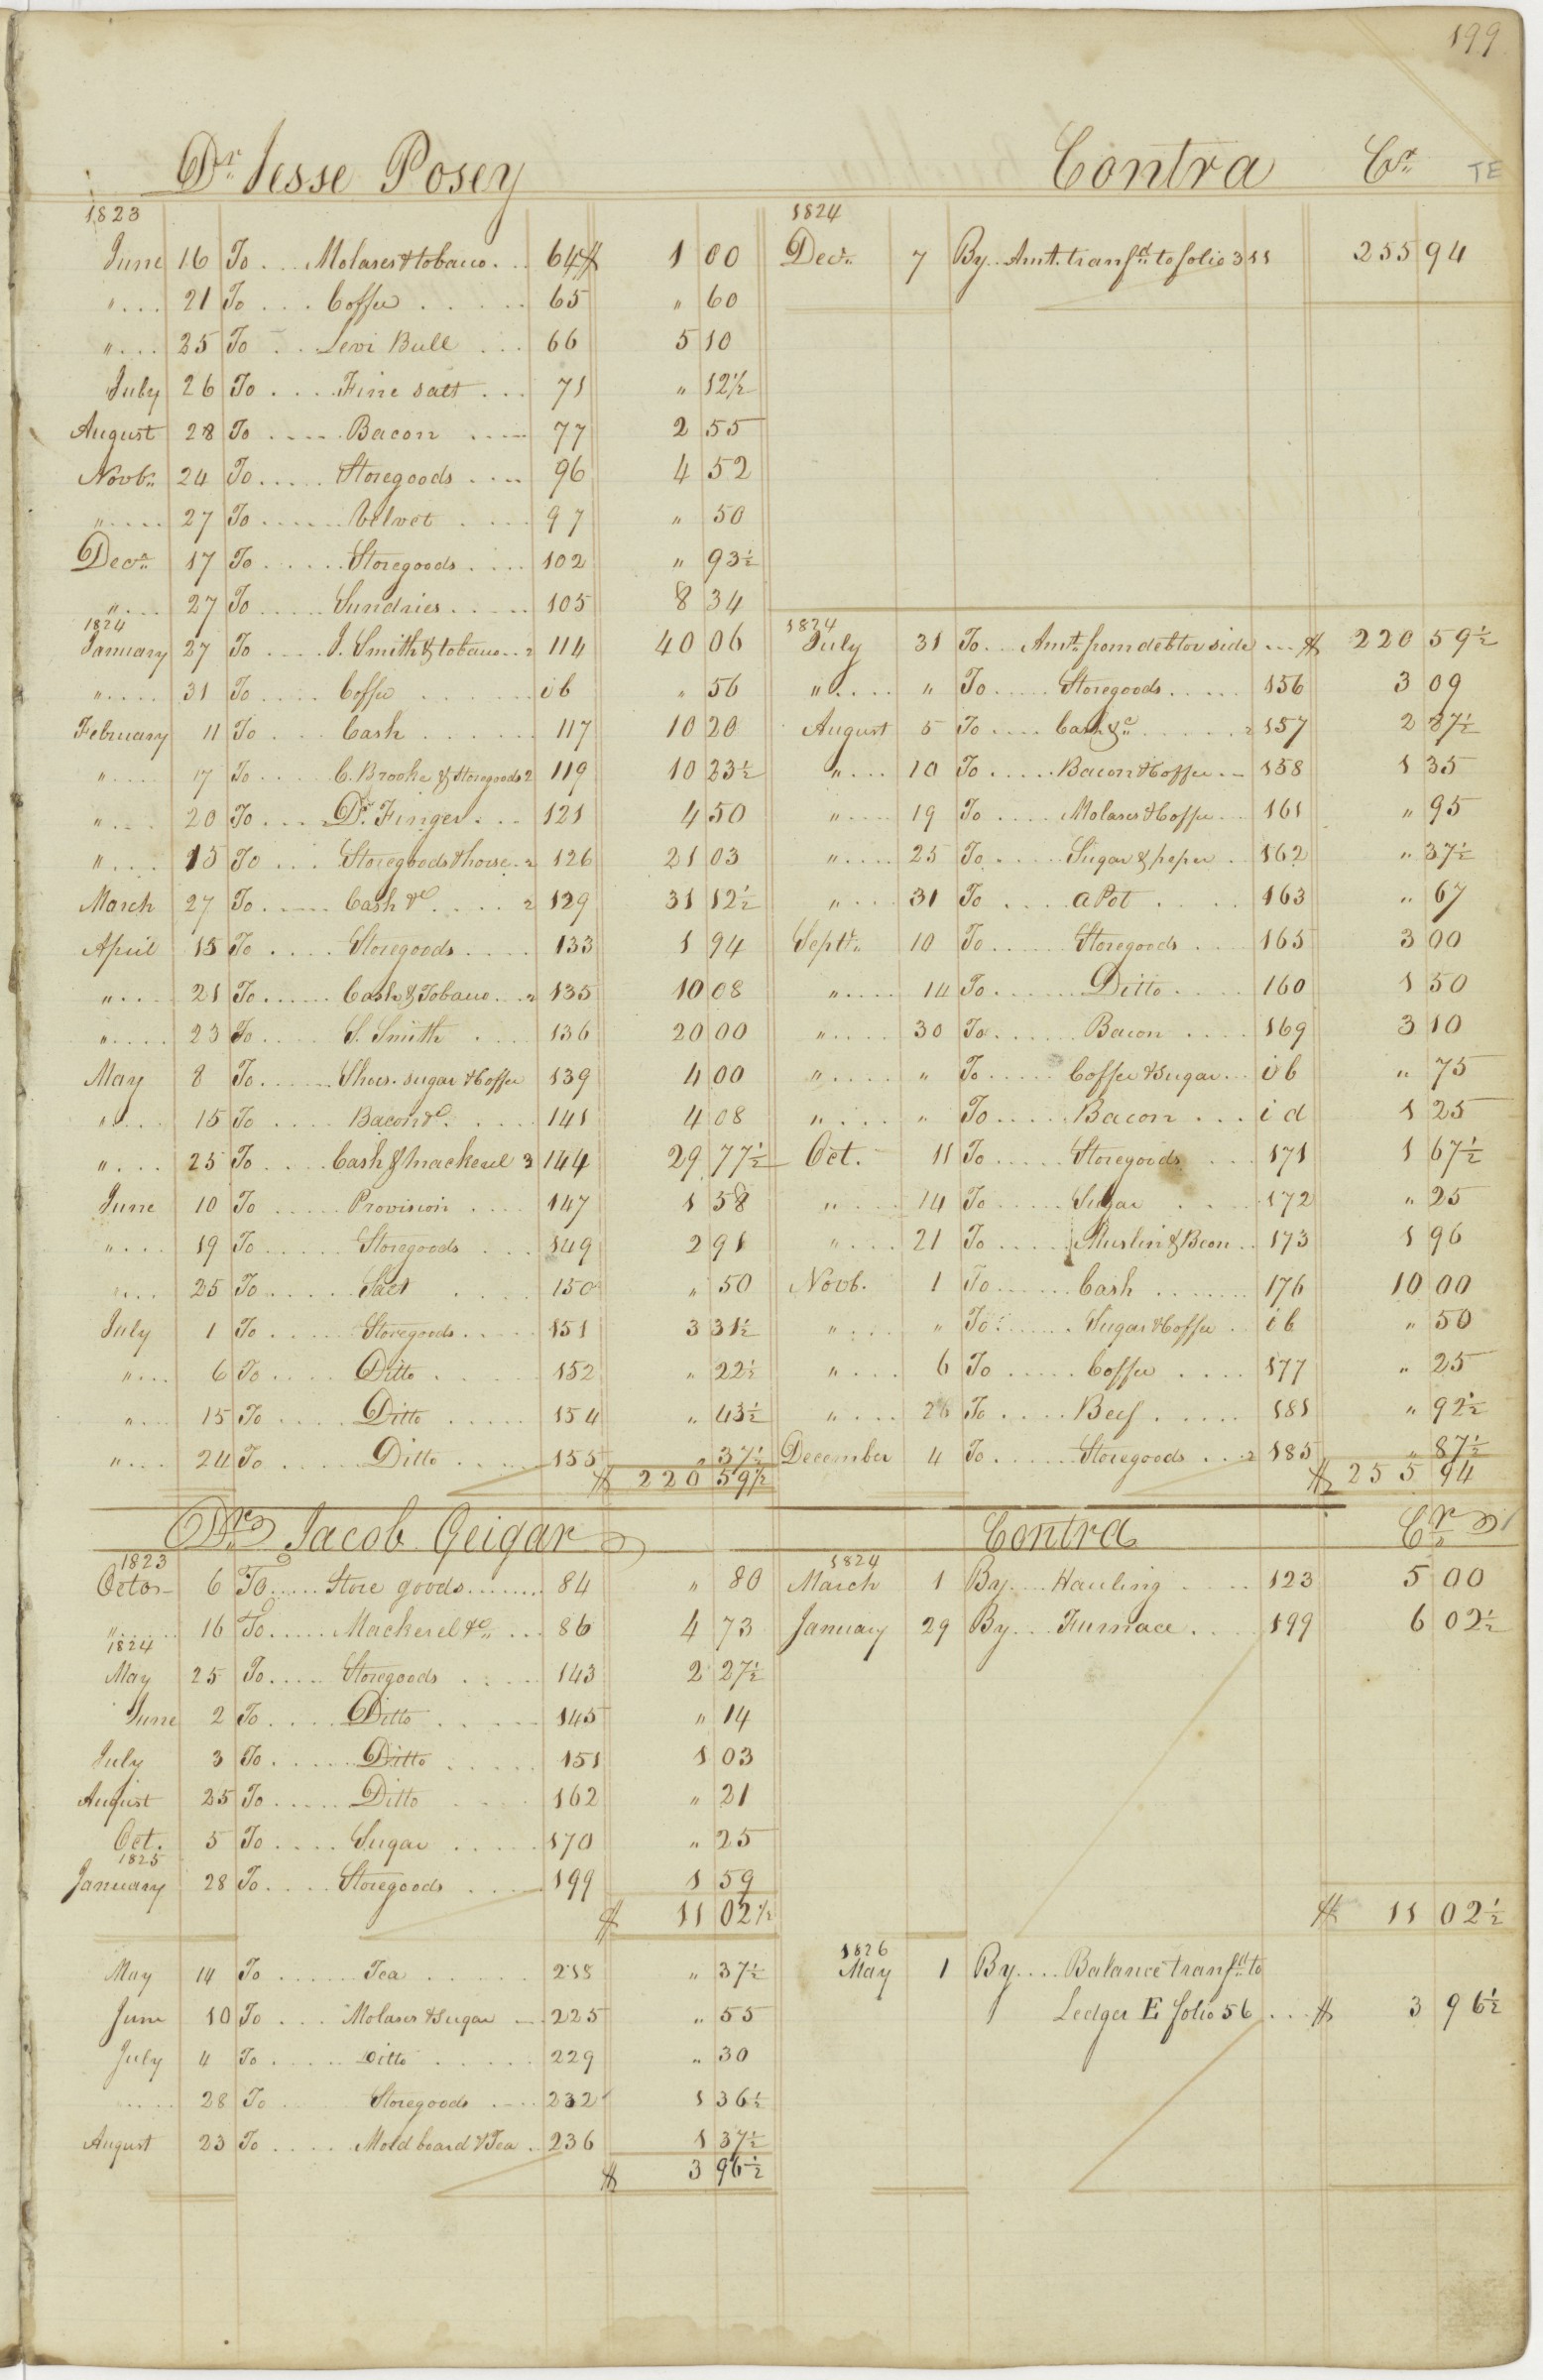 199
Dr. Jesse Posey
Contra Cr.
TE
1823
June 16 To .... Molases & tobacco ... 64 $ 1 00
" .... 21 To .... Coffee ..... 65 " 60
" .... 25 To .. Levi Bull .... 66 5 10
July 26 To .... Fine salt .... 71 " 12½
August 28 To ..... Bacon ..... 77 2 55
Novb. 24 To ..... Storegoods .... 96 4 52
" .... 27 To ...... Velvet ..... 97 " 50
Decr. 17 To ...... Storegoods .... 102 " 93½
" .... 27 To ..... Sundries ..... 105 8 34
1824
January 27 To .... J. Smith & tobacco .. 2 114 40 06
" .... 31 To .... Coffee ...... ib " 56
February 11 To ... Cash ...... 117 10 20
" .... 17 To .... C. Brooke & Storegoods 2 119 10 23½
" .... 20 To .... Dr. Finger ... 121 4 50
" .... 15 To ... Storegoods & horse .. 2 126 21 03
March 27 To ..... Cash &c .... 2 129 31 12½
April 15 To .... Storegoods .... 133 1 94
" .... 21 To ...... Cash & Tobacco .. 2 135 10 08
" .... 23 To .... S. Smith .... 136 20 00
May 8 To ..... Shoes. sugar & Coffee 139 4 00
" .... 15 To .... Bacon &c ..... 141 4 08
" .... 25 To .... Cash & Mackerel 3 144 29 77½
June 10 To ..... Provision .... 147 1 58
" .... 19 To ..... Storegoods .... 149 2 91
" ... 25 To ..... Salt .... 150 " 50
July 1 To ..... Storegoods ..... 151 3 31½
" .... 6 To .... Ditto ..... 152 " 22½
" .... 15 To .... Ditto ..... 154 " 43½
" .... 24 To .... Ditto ..... 155 " 37½
$ 220 59½
1824
Decr. 7 By .. Amt. transfd. to folio 311 255 94
1824
July 31 To ... Amt. from debtor side ... $ 220 59½
" .... " To ..... Storegoods ..... 156 3 09
August 5 To .... Cash &c ..... 2 157 2 87½
" .... 10 To ..... Bacon & Coffee .. 158 1 35
" .... 19 To .... Molases & Coffee ... 161 " 95
" .... 25 To ..... Sugar & peper .. 162 " 37½
" .... 31 To .... a Pot .... 163 " 67
Septr. 10 To ..... Storegoods ... 165 3 00
" .... 14 To ...... Ditto .... 160 1 50
" .... 30 To ...... Bacon .... 169 3 10
" .... " To ..... Coffee & Sugar ... ib " 75
" .... " To ..... Bacon ... id 1 25
Oct. 11 To ..... Storegoods ... 171 1 67½
" .... 14 To ..... Sugar .... 172 " 25
" .... 21 To ..... Muslin & Bcon .. 173 1 96
Novb. 1 To ...... Cash ....... 176 10 00
" .... " To ...... Sugar & Coffee .. ib " 50
" .... 6 To ..... Coffee .... 177 " 25
" .... 26 To .... Beef ..... 181 " 92½
December 4 To ...... Storegoods ... 2 185 " 87½
$ 255 94
Dr. Jacob Geigar
Contra Cr.
1823
Octor 6 To ..... Store goods ........ 84 " 80
" ..... 16 To ..... Mackerel &c. ... 86 4 73
1824
May 25 To ..... Storegoods .... 143 2 27½
June 2 To .... Ditto ..... 145 " 14
July 3 To ..... Ditto ..... 151 1 03
August 25 To ..... Ditto .... 162 " 21
Oct. 5 To .... Sugar ..... 170 " 25
1825
January 28 To .... Storegoods .... 199 1 59
$ 11 02½
May 14 To ...... Tea ...... 218 " 37½
June 10 To ... Molases & Sugar ... 225 " 55
July 4 To ..... Ditto ..... 229 " 30
..... 28 To ... Storegoods .... 232 1 36½
August 23 To ..... Mold board & Tea . 236 1 37½
$ 3 96½
1824
March 1 By .... Hauling .... 123 5 00
January 29 By ... Furnace .... 199 6 02½
$ 11 02½
1826
May 1 By .... Balance transfd. to
Ledger E folio 56 ... $ 3 96½